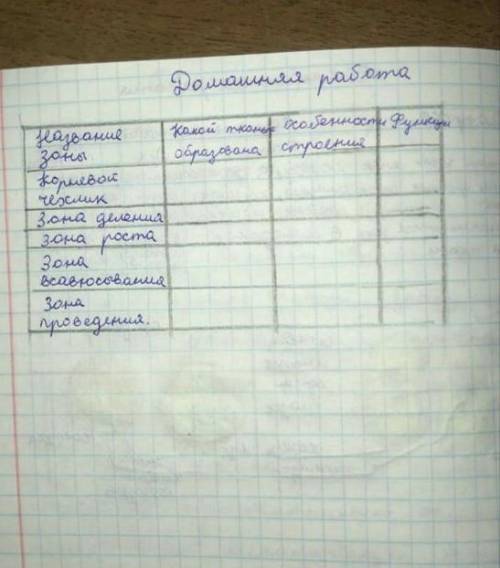 Домашняя работа
Название Какой тканью Особенности Функции
зоны образована строения
Корневой
чехлик
Зона деления
Зона роста
Зона
всавюсования
Зона
проведения.